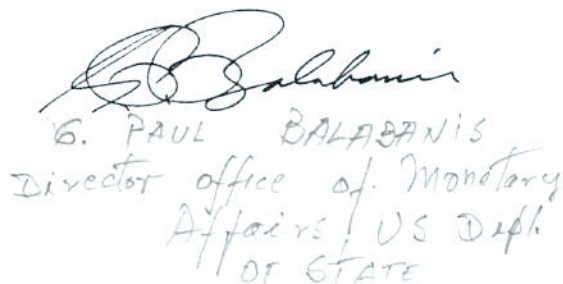 G. P. Balabanis
G. PAUL BALABANIS
Director office of Monetary
Affairs, US Dept.
OF STATE